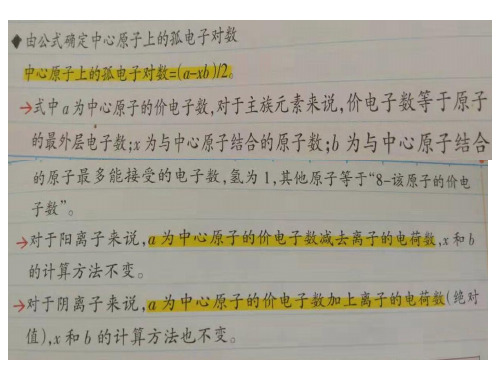 ◆由公式确定中心原子上的孤电子对数
中心原子上的孤电子对数=(a-xb)/2。
→式中a为中心原子的价电子数,对于主族元素来说,价电子数等于原子
的最外层电子数;x为与中心原子结合的原子数;b为与中心原子结合
的原子最多能接受的电子数,氢为1,其他原子等于“8-该原子的价电
子数”。
→对于阳离子来说,a为中心原子的价电子数减去离子的电荷数,x和b
的计算方法不变。
→对于阴离子来说,a为中心原子的价电子数加上离子的电荷数(绝对
值),x和b的计算方法也不变。